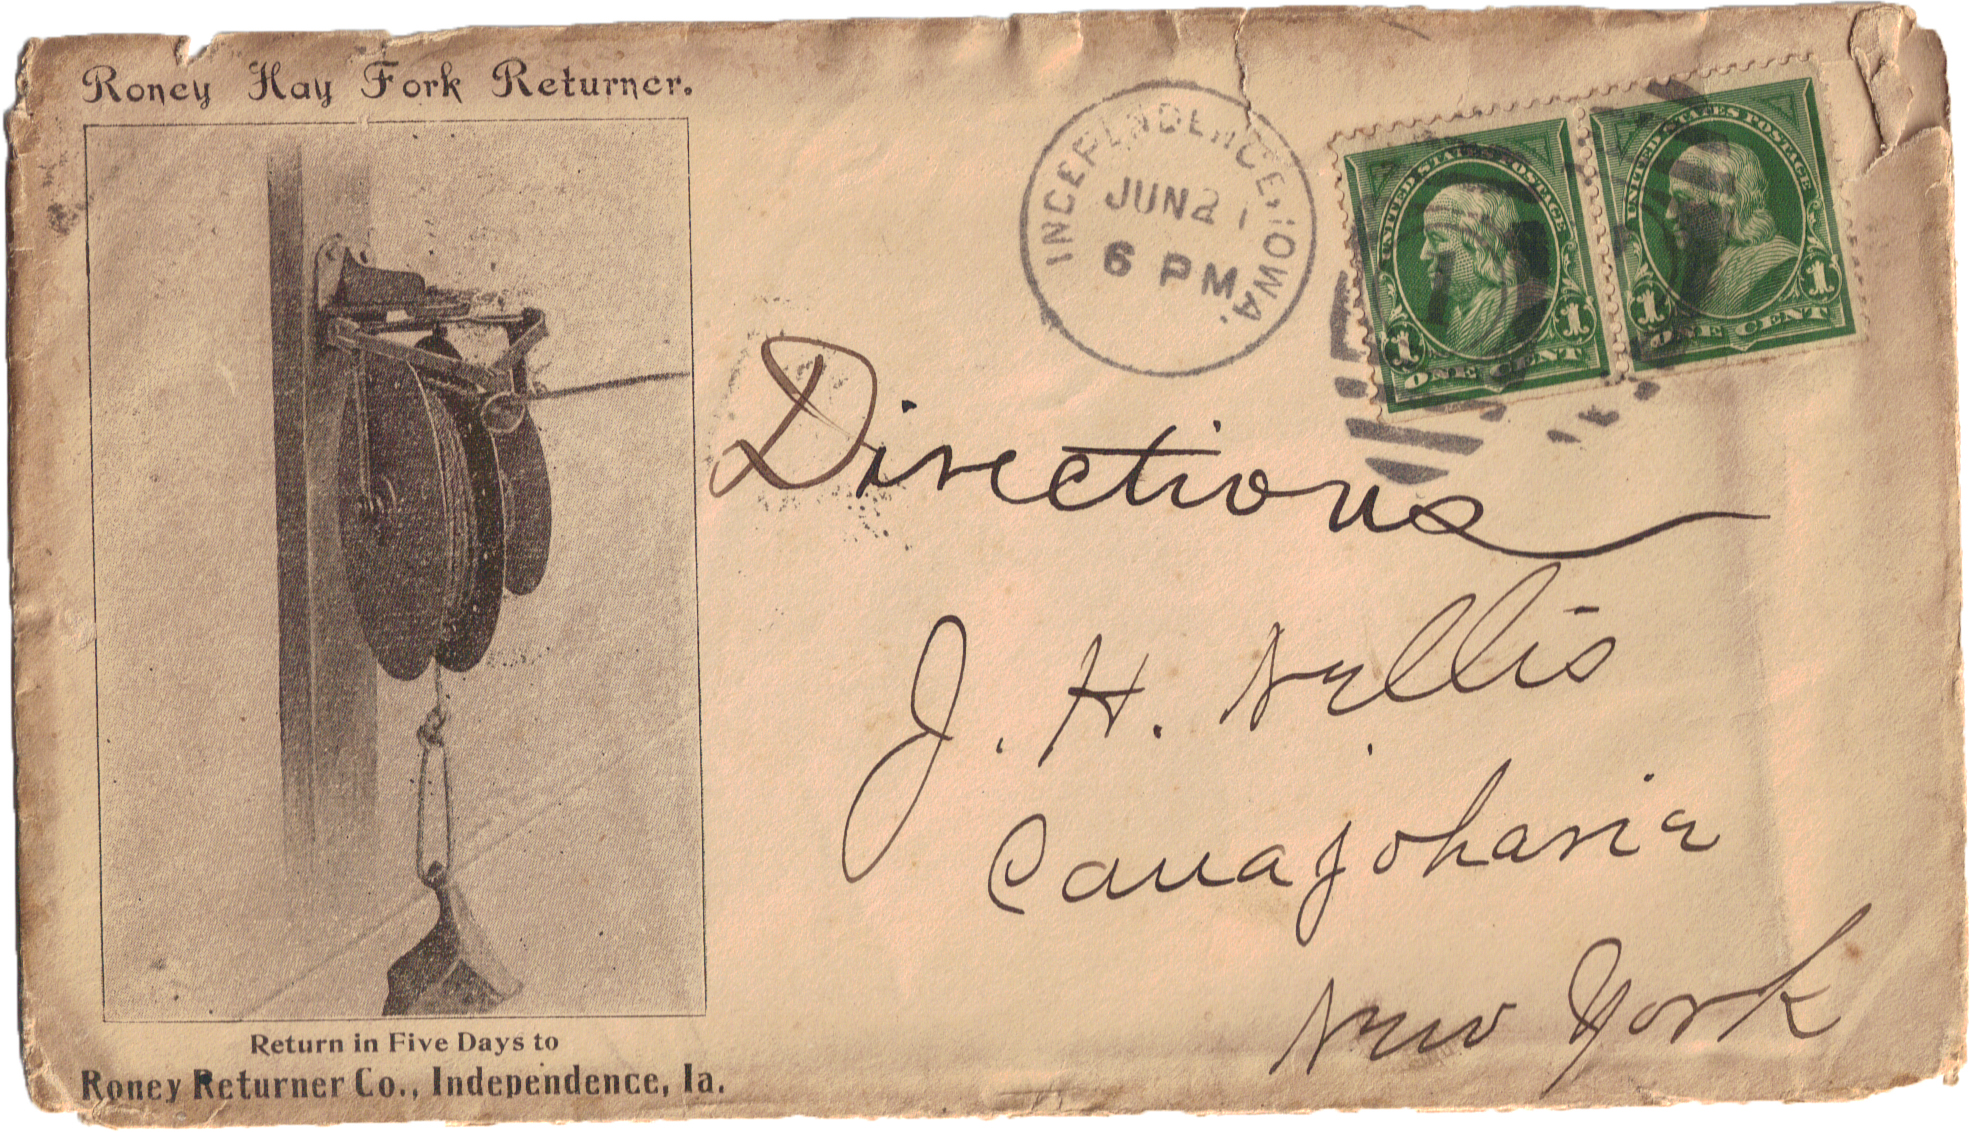 Roney Hay Fork Returner.
INDEPENDENCE, IOWA.
JUN 2
6 PM
UNITED STATES POSTAGE
1 1
ONE CENT
UNITED STATES POSTAGE
1 1
ONE CENT
Directions
J. H. Nellis
Canajoharie
New York
Return in Five Days to
Roney Returner Co., Independence, Ia.